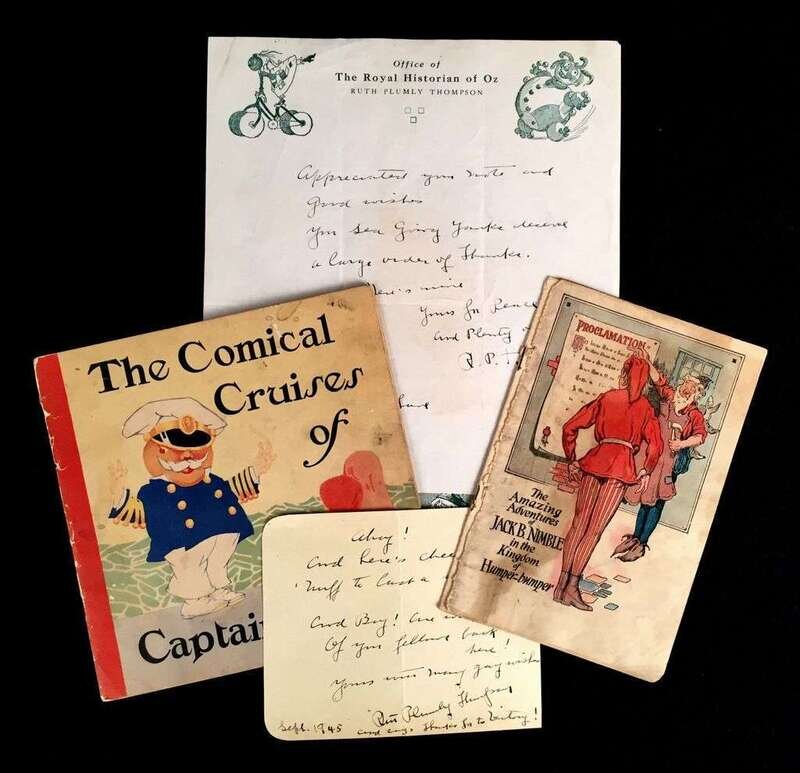 Office of
The Royal Historian of Oz
RUTH PLUMLY THOMPSON
Appreciated your note and
good wishes
You Sea Going Yanks deserve
a large order of Thanks.
Here's mine
Yours for Peace
and Plenty
R.P.T.
The Comical
Cruises
of
Captain
PROCLAMATION
The
Amazing
Adventures
of
JACK B. NIMBLE
in the
Kingdom
of
Humper-bumper
Ahoy!
and here's
'nuff to last a
And Boy! Are
Of you fellows back
here!
Yours with many gay wishes
Ruth Plumly Thompson
Sept. 1945
Thanks for the Victory!